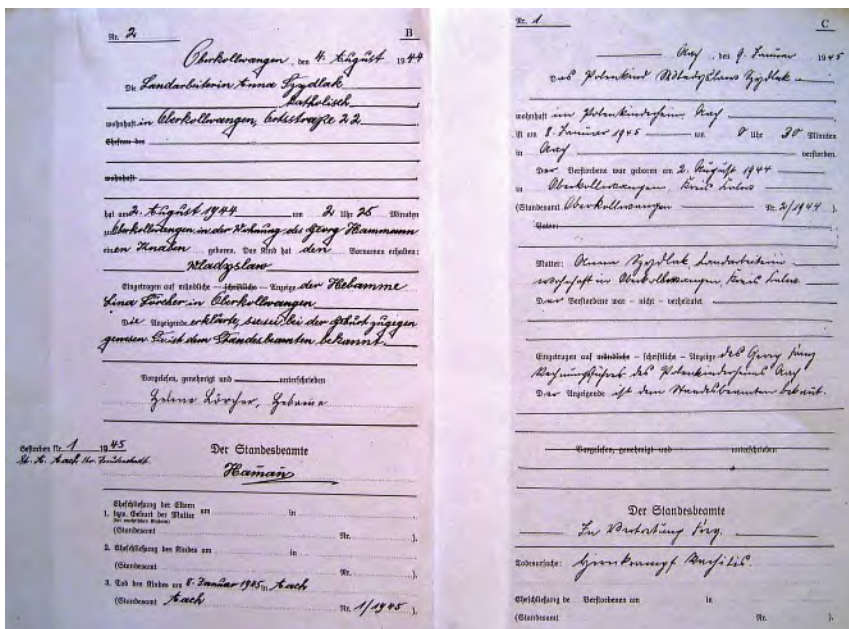 Nr. 2 B
Oberkollwangen, den 4. August 1944
Die Landarbeiterin Anna Szydlak
katholisch
wohnhaft in Oberkollwangen, Ortsstraße 22
Ehefrau des
wohnhaft
hat am 2. August 1944 um 2 Uhr 25 Minuten
in Oberkollwangen in der Wohnung des Georg Hammann
einen Knaben geboren. Das Kind hat den Vornamen erhalten:
Wladyslaw
Eingetragen auf mündliche – schriftliche – Anzeige der Hebamme
Lina Lörcher in Oberkollwangen
Die Anzeigende erklärte, sie sei bei der Geburt zugegen
gewesen. Sie ist dem Standesbeamten bekannt.
Vorgelesen, genehmigt und unterschrieben
Helene Lörcher, Hebame
Gestorben Nr. 1 1945
St. A. Aach Kr. Freudenstadt
Der Standesbeamte
Hamañ
Eheschließung der Eltern
1. bzw. Geburt der Mutter am in
(Standesamt Nr. ).
2. Eheschließung des Kindes am in
(Standesamt Nr. ).
3. Tod des Kindes am 8. Januar 1945 in Aach
(Standesamt Aach Nr. 1/1945 ).
Nr. 1 C
Aach, den 9. Januar 1945
Das Polenkind Wladyslaw Szydlak
wohnhaft im Polenkinderheim Aach
ist am 8. Januar 1945 um 0 Uhr 30 Minuten
in Aach verstorben.
Der Verstorbene war geboren am 2. August 1944
in Oberkollwangen, Kreis Calw
(Standesamt Oberkollwangen Nr. 2/1944 ).
Vater:
Mutter: Anna Szydlak, Landarbeiterin
wohnhaft in Oberkollwangen, Kreis Calw
Der Verstorbene war – nicht – verheiratet
Eingetragen auf mündliche – schriftliche – Anzeige des Georg
Rechnungsführers des Polenkinderheims Aach
Der Anzeigende ist dem Standesbeamten bekannt.
Vorgelesen, genehmigt und unterschrieben
Der Standesbeamte
In Vertretung
Todesursache: Hirnkrampf Rachitis.
Eheschließung de Verstorbenen am in
(Standesamt Nr. ).